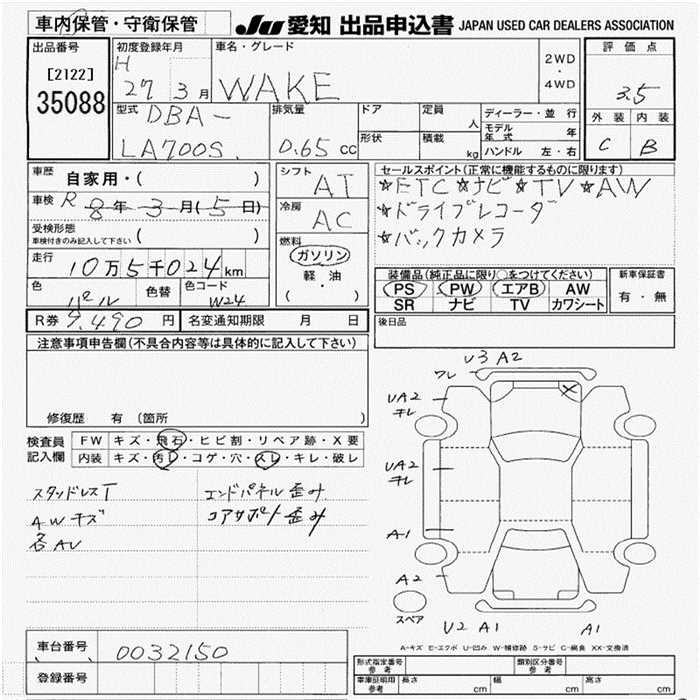 車内保管・守衛保管
JU 愛知 出品申込書 JAPAN USED CAR DEALERS ASSOCIATION
出品番号
[2122]
35088
初度登録年月
H 27 3月
車名・グレード
WAKE
2WD
・
4WD
評価点
3.5
外装 内装
C B
型式
DBA-
LA700S
排気量
0.65 cc
ドア
形状
定員 人
積載 kg
ディーラー・並行
モデル年式 年
ハンドル 左・右
車歴 自家用・( )
車検 R 8年 3月(5日)
受検形態
車検付きのみ記入して下さい ( )
走行 10万5千024km
色 パール
色替
色コード W24
R券 9,490円
名変通知期限 月 日
シフト AT
冷房 AC
燃料
ガソリン
軽・油
( )
セールスポイント(正常に機能するものに限ります)
☆ETC ☆ナビ ☆TV ☆AW
☆ドライブレコーダ
☆バックカメラ
装備品(純正品に限り○をつけてください)
PS PW エアB AW
SR ナビ TV カワシート
新車保証書
有・無
後日品
注意事項申告欄(不具合内容等は具体的に記入して下さい)
修復歴 有(箇所 )
検査員記入欄
FW キズ・飛石・ヒビ割・リペア跡・X要
内装 キズ・汚レ・コゲ・穴・スレ・キレ・破レ
スタッドレスT
AWキズ
各AU
エンドパネル歪み
コアサポート歪み
U3 A2
ワレ
UA2
キレ
UA2
キレ
A1
A2
スペア
U2 A1
A1
A-キズ E-エクボ U-凹み W-補修跡 S-サビ C-腐食 XX-交換済
車台番号 0032150
登録番号
形式指定番号 参考
類別区分番号 参考
車庫証明用 参考
長さ cm 幅 cm 高さ cm